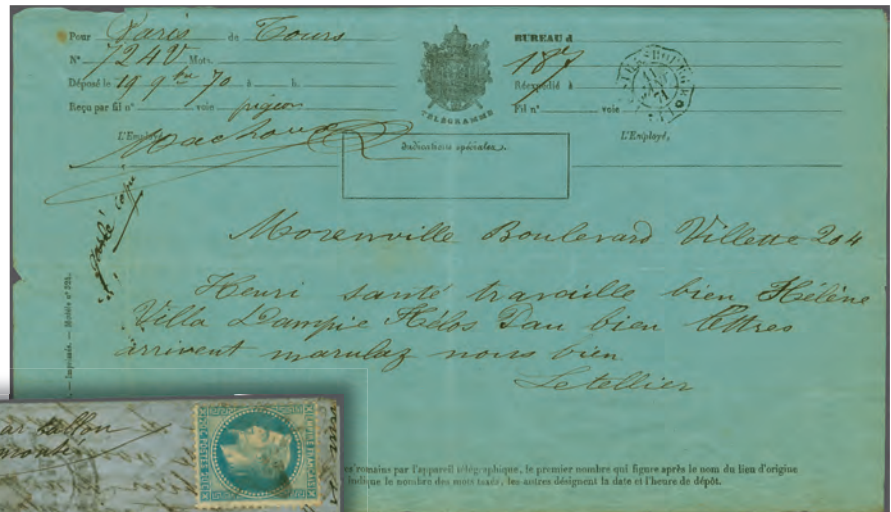 Pour Paris de Tours
N° 724V Mots.
Déposé le 19 9bre 70 à h.
Reçu par fil n° voie pigeon
L'Employé,
TELEGRAMME
BUREAU d
187
Réexpédié à
Fil n° voie
L'Employé,
Indications spéciales.
Morenville Boulevard Villette 204
Henri santé travaille bien Hélène
Villa Dampie Hélos Dau bien lettres
arrivent marulaz nous bien
Letellier
— Imprimés. — Modèle n°
romains par l'appareil télégraphique, le premier nombre qui figure après le nom du lieu d'origine
indique le nombre des mots taxés, les autres désignent la date et l'heure de dépôt.
par ballon
monté
EMPIRE FRANÇAIS